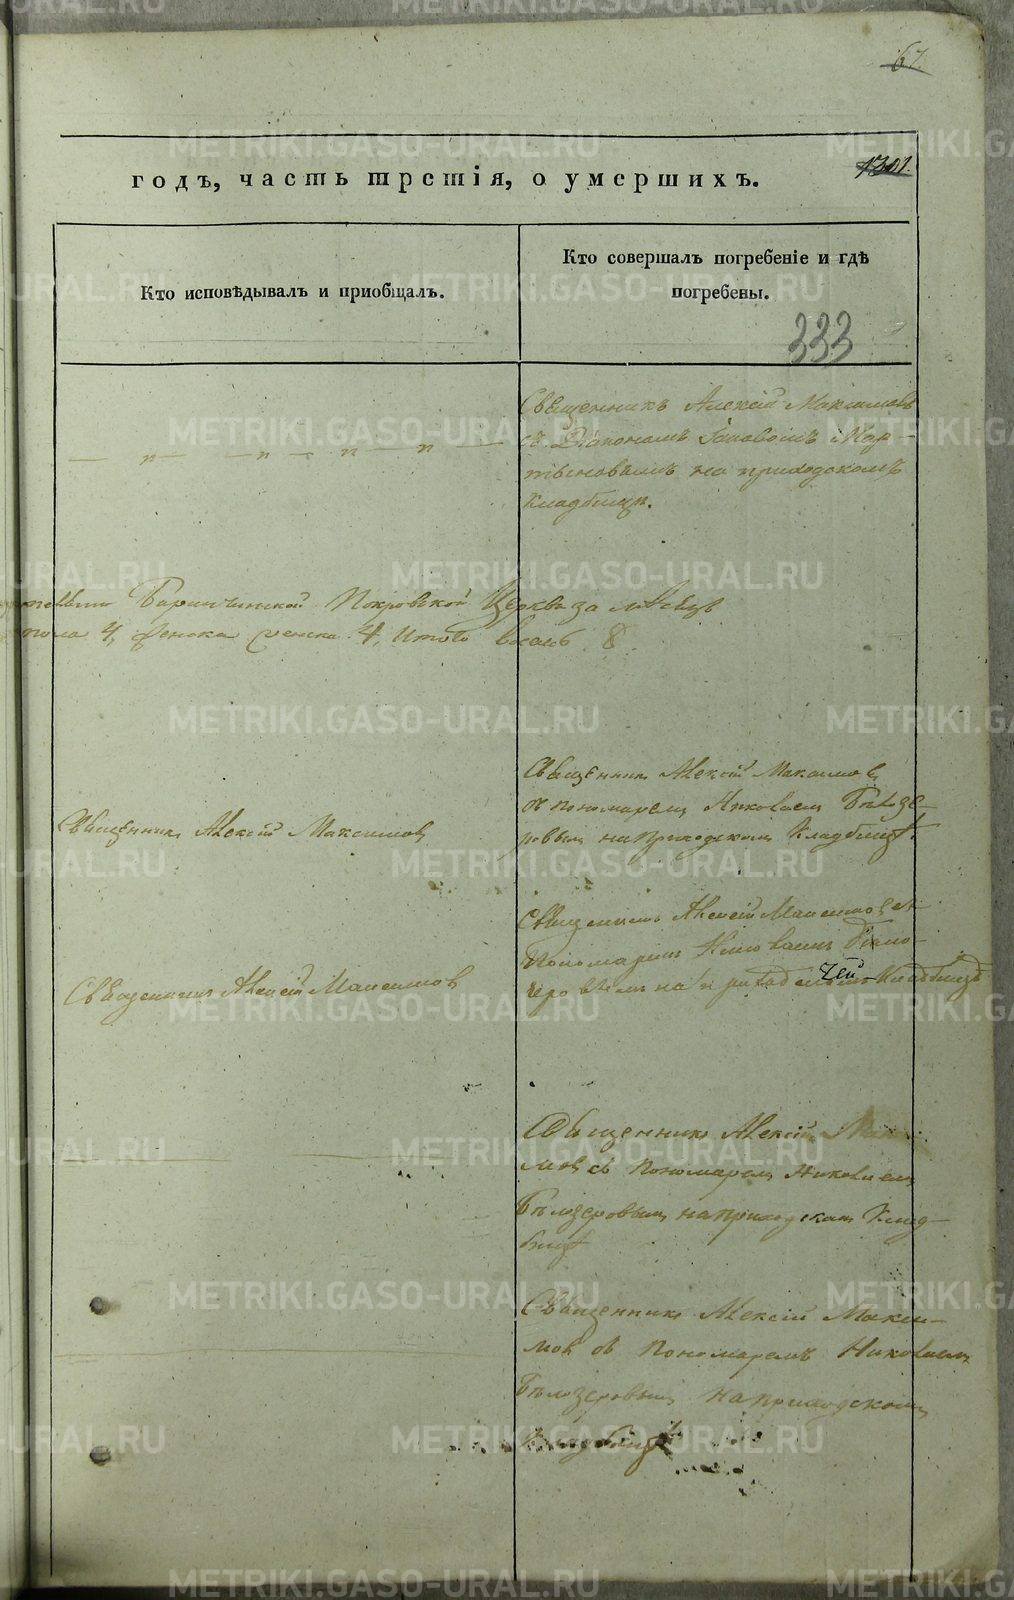 67.
1301.
годъ, часть третія, о умершихъ.
Кто исповѣдывалъ и приобщалъ.
Кто совершалъ погребеніе и гдѣ
погребены.
333
Священникъ Алексій Максимовъ
съ Діакономъ Мар-
на приходскомъ
Кладбищѣ.
Баранчинской Покровской Церкви за мѣсяцъ
пола 4, женска 4, итого восемь 8.
Священникъ Алексій Максимовъ
Священникъ Алексій Максимовъ
съ пономаремъ Николаемъ Бѣлозе-
ровымъ на приходскомъ Кладбищѣ.
Священникъ Алексій Максимовъ
Священникъ Алексій Максимовъ съ
Пономаремъ Николаемъ Бѣло-
зеровымъ на приходскомъ Кладбищѣ
Священникъ Алексій Макси-
мовъ съ Пономаремъ Николаемъ
Бѣлозеровымъ на приходскомъ Клад-
бищѣ
Священникъ Алексій Макси-
мовъ съ Пономаремъ Николаемъ
Бѣлозеровымъ на приходскомъ
Кладбищѣ
METRIKI.GASO-URAL.RU